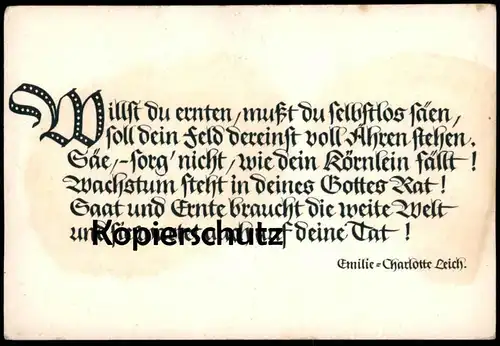 Willst du ernten, mußt du selbstlos säen,
soll dein Feld dereinst voll Ähren stehen.
Säe, – sorg' nicht, wie dein Körnlein fällt!
Wachstum steht in deines Gottes Rat!
Saat und Ernte braucht die weite Welt
und deine Tat!
Kopierschutz
Emilie=Charlotte Leich.